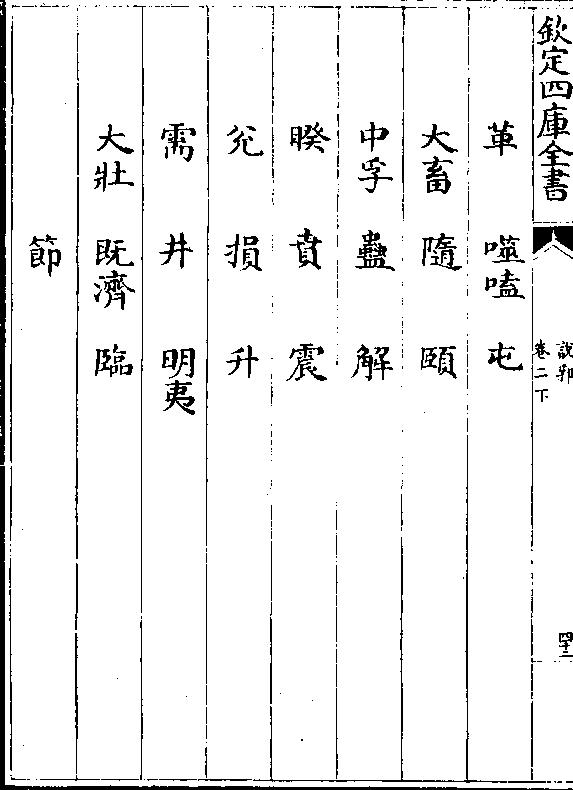 欽定四庫全書
說郛
卷二下
四十二
革 噬嗑 屯
大畜 隨 頤
中孚 蠱 解
睽 賁 震
兊 損 升
需 井 明夷
大壯 既濟 臨
節